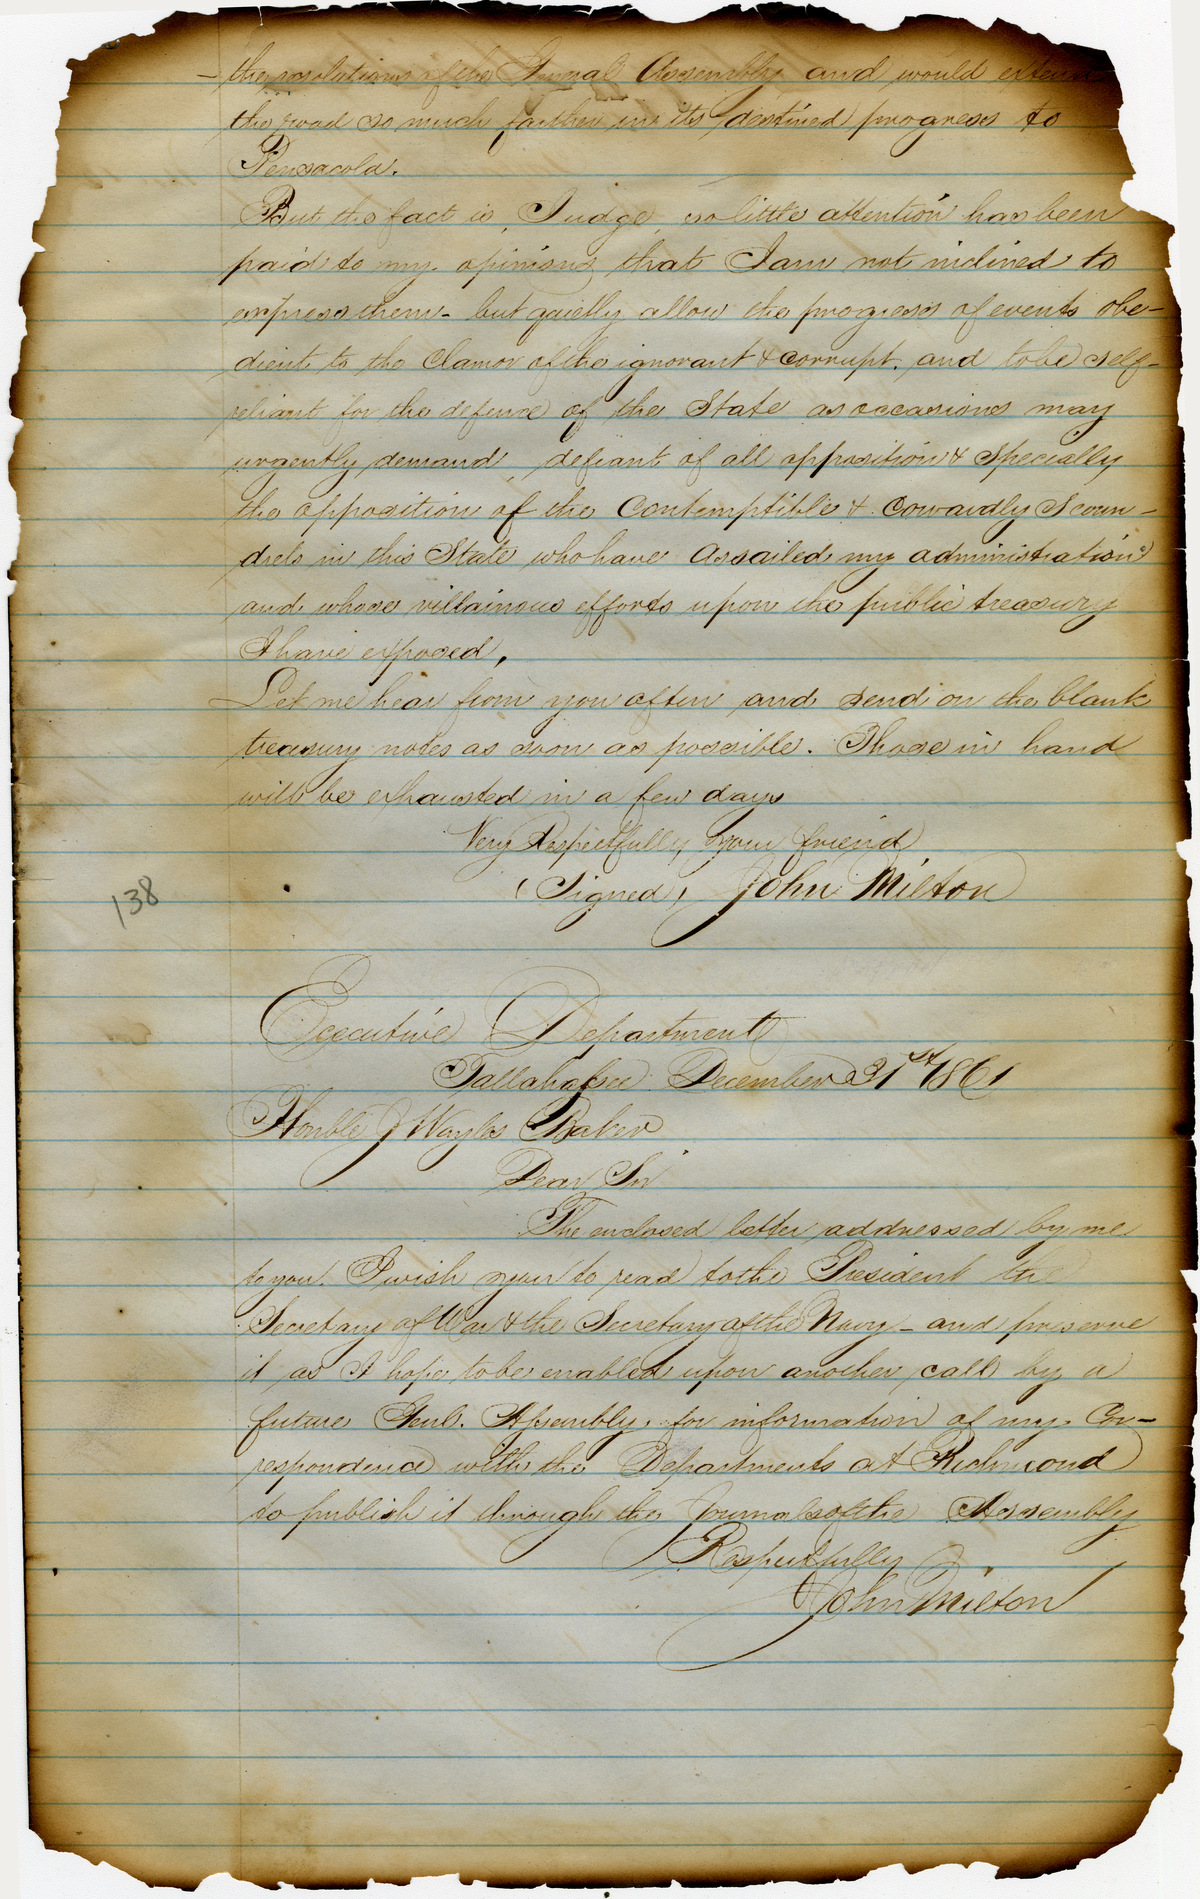 the resolutions of the General Assembly and would extend
the road so much farther in its destined progress to
Pensacola.
But the fact is, Judge, so little attention has been
paid to my opinions that I am not inclined to
express them – but quietly allow the progress of events obe-
dient to the clamor of the ignorant & corrupt, and to be self-
reliant for the defence of the State as occasions may
urgently demand, defiant of all opposition & specially
the opposition of the Contemptible & Cowardly Scoun-
drels in this State who have assailed my administration
and whose villainous efforts upon the public treasury
I have exposed,
Let me hear from you often and send on the blank
treasury notes as soon as possible. Those in hand
will be exhausted in a few days
Very Respectfully your friend
(Signed) John Milton
138
Executive Department
Tallahassee December 31st 1861
Honble J Wayles Baker
Dear Sir
The enclosed letter addressed by me
to you. I wish you to read to the President the
Secretary of War & the Secretary of the Navy – and preserve
it as I hope to be enabled upon another call by a
future Genl. Assembly, for information of my Cor-
respondence with the Departments at Richmond
to publish it through the Journals of the Assembly
Respectfully
John Milton